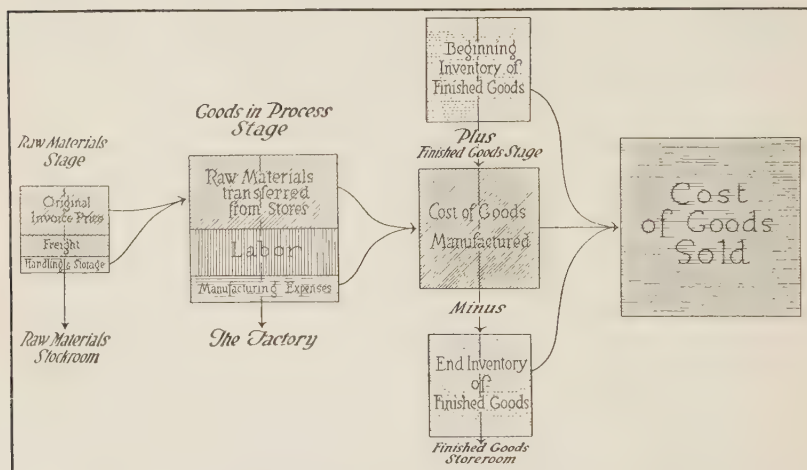 Raw Materials
Stage
Original
Invoice Price
Freight
Handling & Storage
Raw Materials
Stockroom
Goods in Process
Stage
Raw Materials
transferred
from Stores
Labor
Manufacturing Expenses
The Factory
Beginning
Inventory of
Finished Goods
Plus
Finished Goods Stage
Cost of Goods
Manufactured
Minus
End Inventory
of
Finished Goods
Finished Goods
Storeroom
Cost
of Goods
Sold